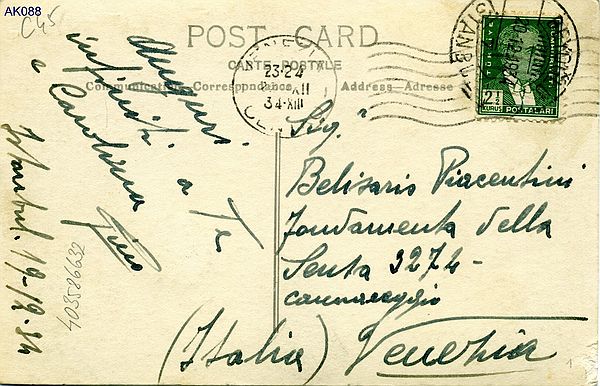 AK088
C45
POST CARD
CARTE POSTALE
Communication - Correspondance
Address - Adresse
VENEZIA
23·24
XII
34·XIII
BEYOĞLU
ISTANBUL
2½
KURUŞ
POSTALARI
Auguri
infiniti a Te
e Carolina
Gino
Istanbul. 19-12.34
403586632
Sig.
Belisario Piacentini
Fondamenta della
Senta 3274-
cannareggio
(Italia) Venezia
1